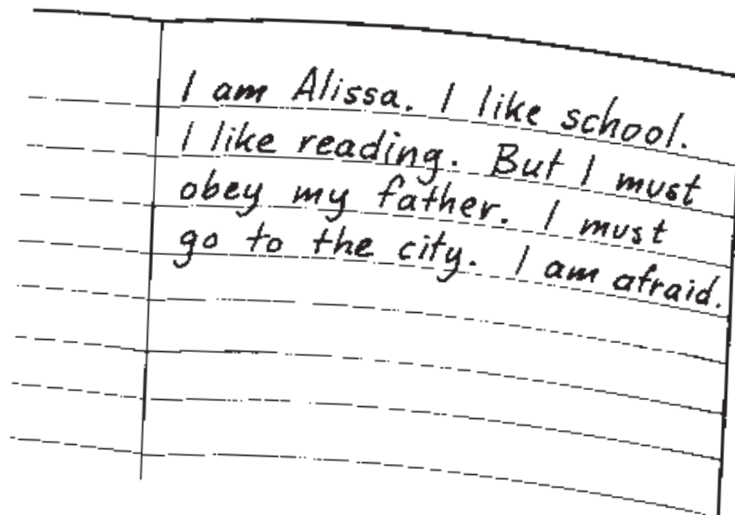 I am Alissa. I like school.
I like reading. But I must
obey my father. I must
go to the city. I am afraid.